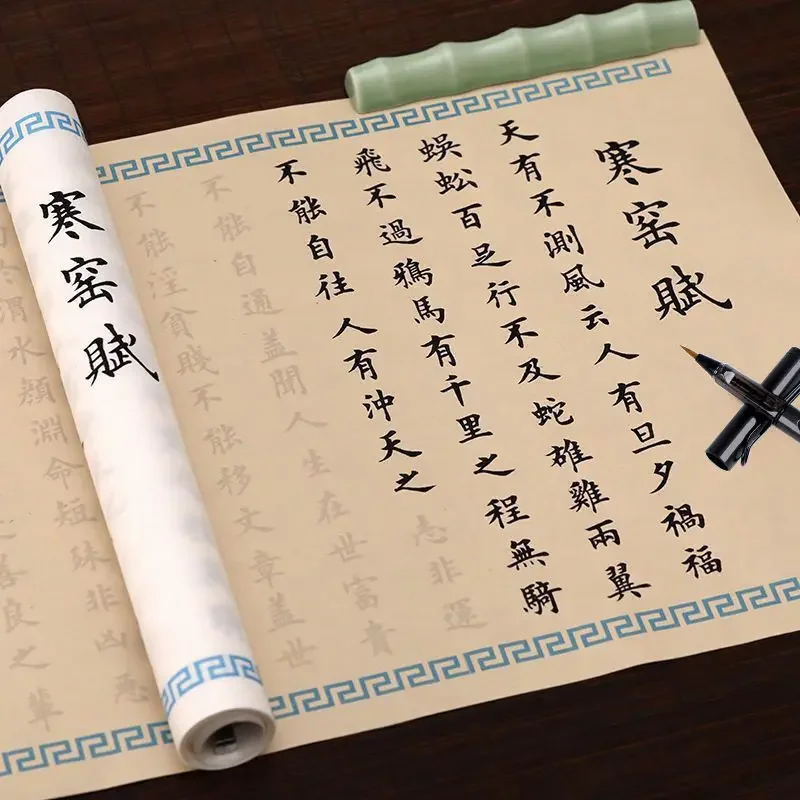 寒窑賦
天有不測風云人有旦夕禍福
蜈蚣百足行不及蛇雄雞兩翼
飛不過鴉馬有千里之程無騎
不能自往人有沖天之志非運
不能自通盖聞人生在世富貴
不能淫貧賤不能移文章盖世
寒窑賦
渭水顏淵命短殊非凶惡
善良之輩